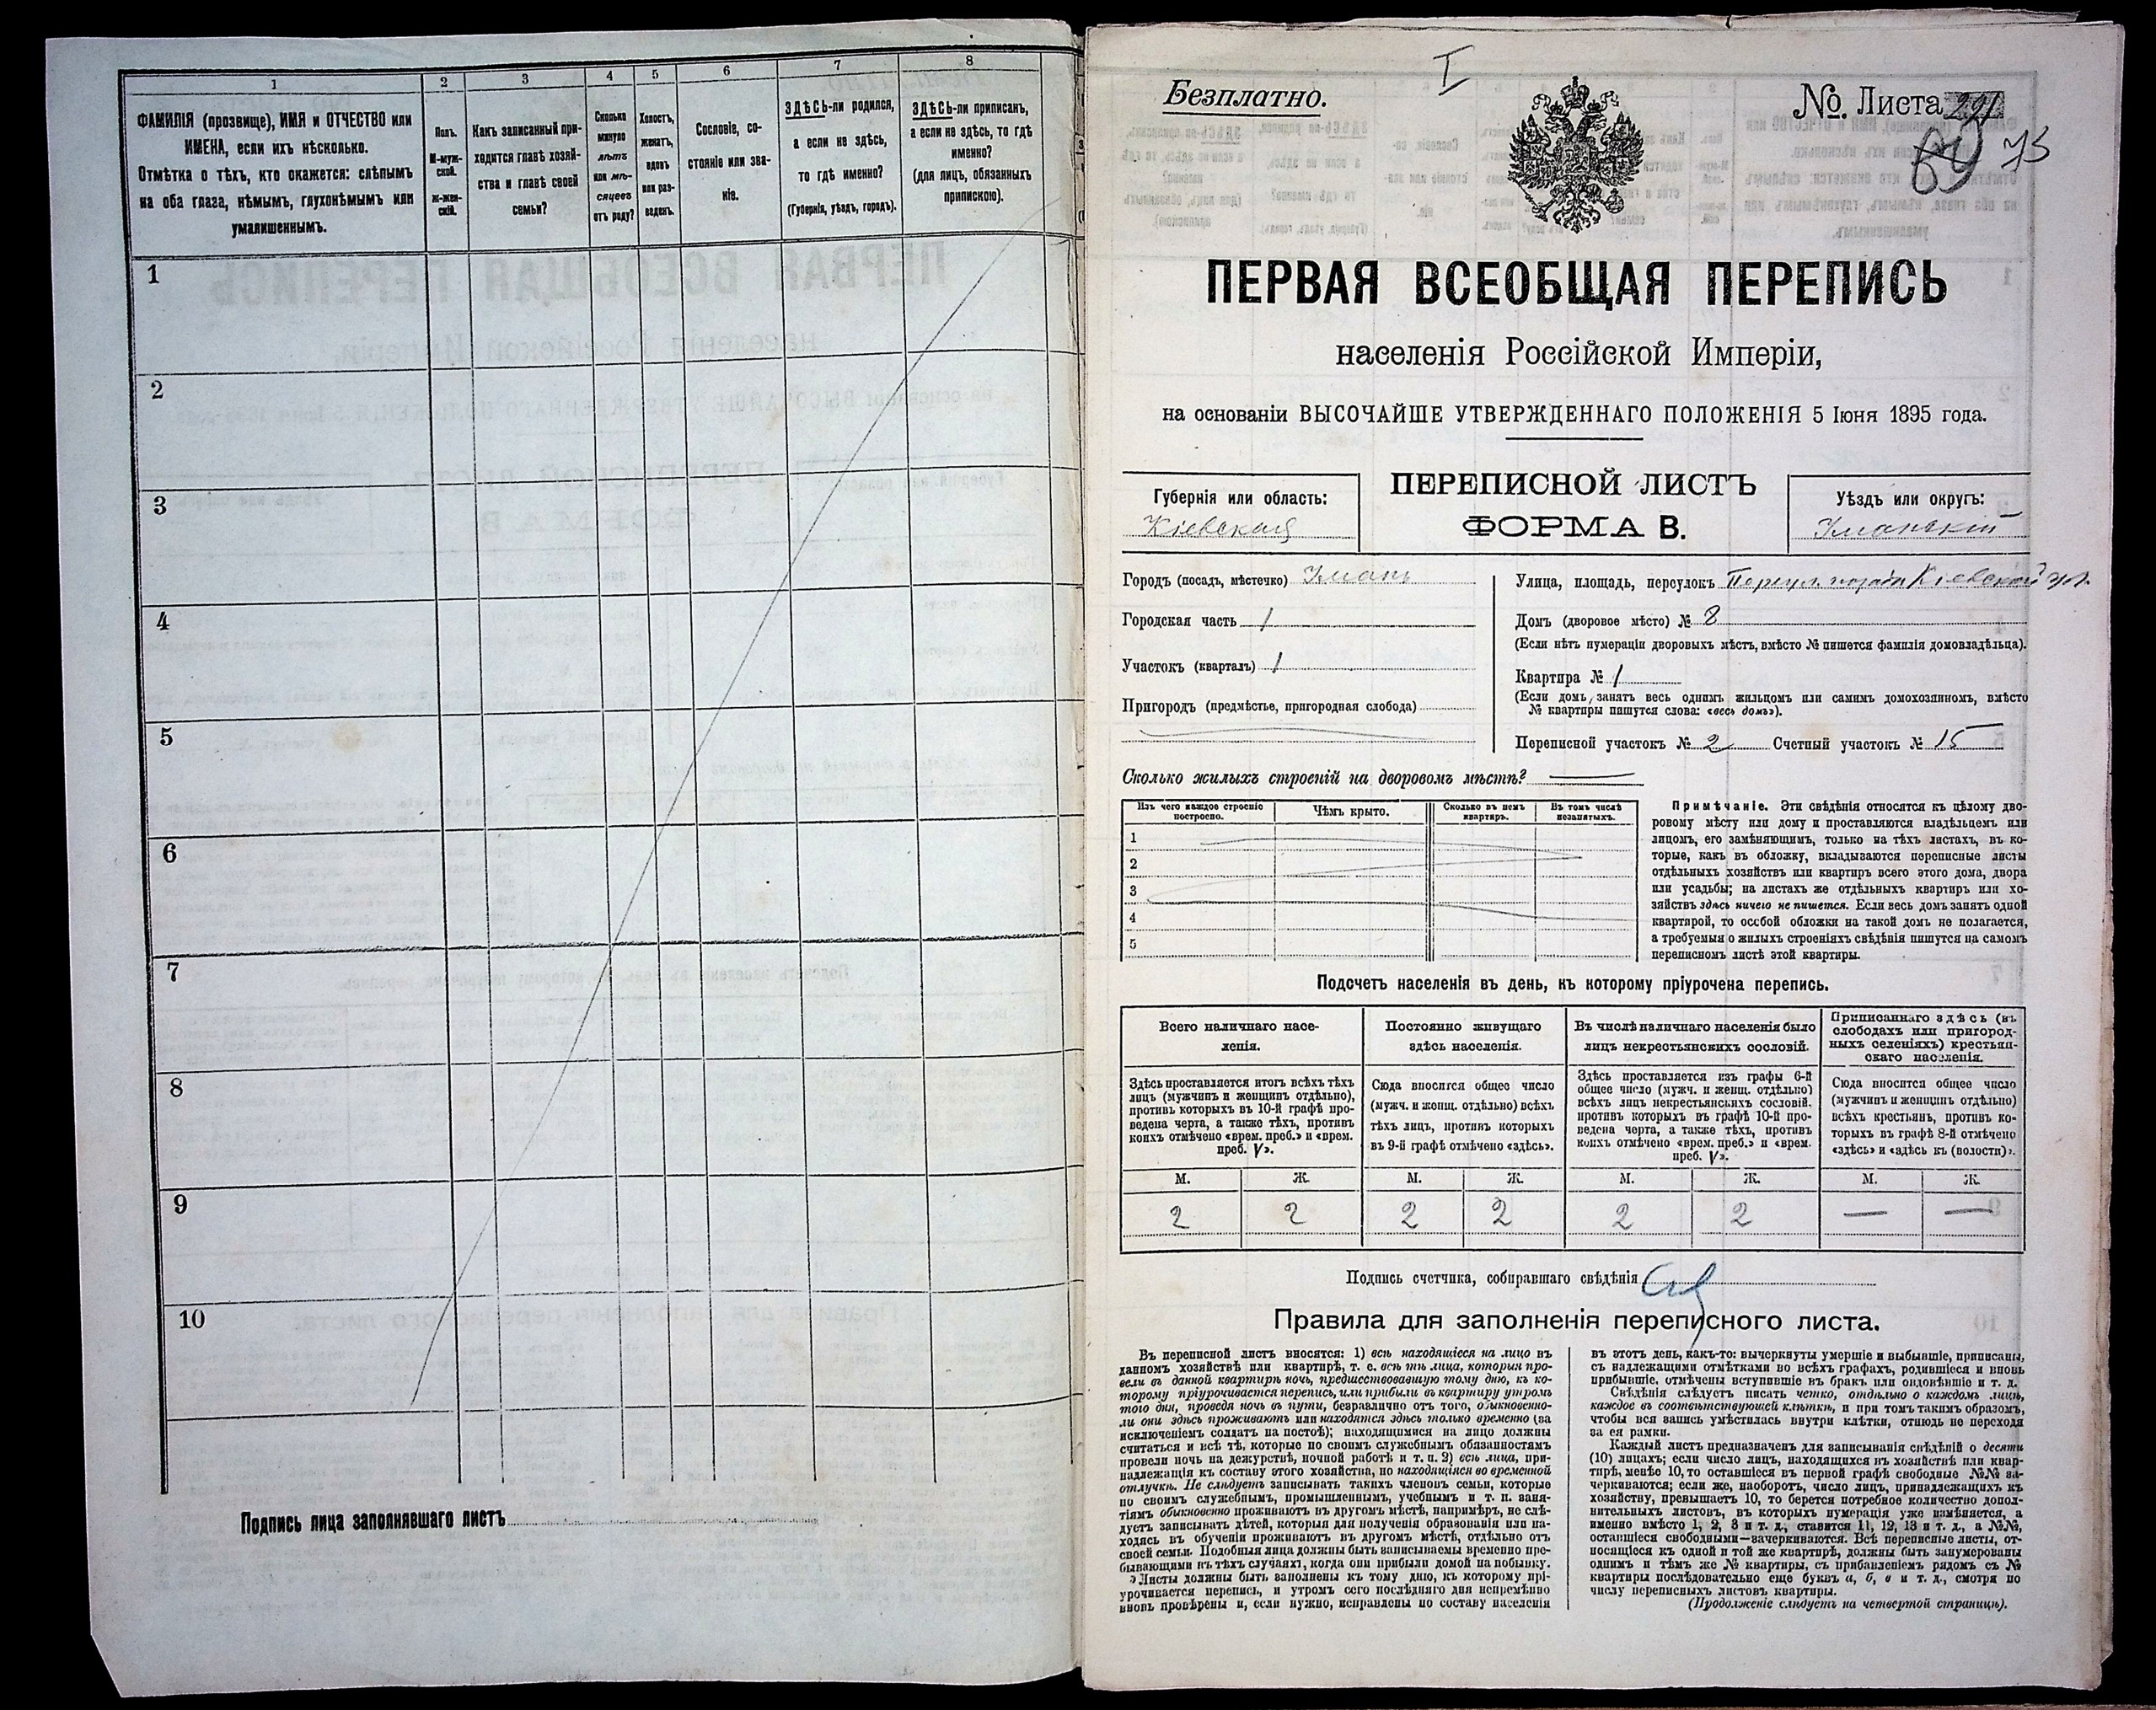 1
2
3
4
5
6
7
8
ФАМИЛІЯ (прозвище), ИМЯ и ОТЧЕСТВО или
ИМЕНА, если ихъ нѣсколько.
Отмѣтка о тѣхъ, кто окажется: слѣпымъ
на оба глаза, нѣмымъ, глухонѣмымъ или
умалишеннымъ.
Полъ.
М-муж-
ской.
Ж-жен-
скій.
Какъ записанный при-
ходится главѣ хозяй-
ства и главѣ своей
семьи?
Сколько
минуло
лѣтъ
или мѣ-
сяцевъ
отъ роду?
Холостъ,
женатъ,
вдовъ
или раз-
веденъ.
Сословіе, со-
стояніе или зва-
ніе.
ЗДѢСЬ-ли родился,
а если не здѣсь,
то гдѣ именно?
(Губернія, уѣздъ, городъ).
ЗДѢСЬ-ли приписанъ,
а если не здѣсь, то гдѣ
именно?
(для лицъ, обязанныхъ
припискою).
1
2
3
4
5
6
7
8
9
10
Подпись лица заполнявшаго листъ
I
Безплатно.
№ Листа 291
73
ПЕРВАЯ ВСЕОБЩАЯ ПЕРЕПИСЬ
населенія Россійской Имперіи,
на основаніи ВЫСОЧАЙШЕ УТВЕРЖДЕННАГО ПОЛОЖЕНІЯ 5 Іюня 1895 года.
Губернія или область:
Кіевская
ПЕРЕПИСНОЙ ЛИСТЪ
ФОРМА В.
Уѣздъ или округъ:
Уманскій
Городъ (посадъ, мѣстечко) Умань
Городская часть 1
Участокъ (кварталъ) 1
Пригородъ (предмѣстье, пригородная слобода)
Улица, площадь, переулокъ Переул. позади Кіевской ул.
Домъ (дворовое мѣсто) № 8
(Если нѣтъ нумераціи дворовыхъ мѣстъ, вмѣсто № пишется фамилія домовладѣльца).
Квартира № 1
(Если домъ занятъ весь однимъ жильцомъ или самимъ домохозяиномъ, вмѣсто
№ квартиры пишутся слова: «весь домъ»).
Переписной участокъ № 2 Счетный участокъ № 15
Сколько жилыхъ строеній на дворовомъ мѣстѣ?
Изъ чего каждое строеніе
построено.
Чѣмъ крыто.
Сколько въ немъ
квартиръ.
Въ томъ числѣ
незанятыхъ.
1
2
3
4
5
Примѣчаніе. Эти свѣдѣнія относятся къ цѣлому дво-
ровому мѣсту или дому и проставляются владѣльцемъ или
лицомъ, его замѣняющимъ, только на тѣхъ листахъ, въ ко-
торые, какъ въ обложку, вкладываются переписные листы
отдѣльныхъ хозяйствъ или квартиръ всего этого дома, двора
или усадьбы; на листахъ же отдѣльныхъ квартиръ или хо-
зяйствъ здѣсь ничего не пишется. Если весь домъ занятъ одной
квартирой, то особой обложки на такой домъ не полагается,
а требуемыя о жилыхъ строеніяхъ свѣдѣнія пишутся на самомъ
переписномъ листѣ этой квартиры.
Подсчетъ населенія въ день, къ которому пріурочена перепись.
Всего наличнаго насе-
ленія.
Постоянно живущаго
здѣсь населенія.
Въ числѣ наличнаго населенія было
лицъ некрестьянскихъ сословій.
Приписаннаго здѣсь (въ
слободахъ или пригород-
ныхъ селеніяхъ) крестьян-
скаго населенія.
Здѣсь проставляется итогъ всѣхъ тѣхъ
лицъ (мужчинъ и женщинъ отдѣльно),
противъ которыхъ въ 10-й графѣ про-
ведена черта, а также тѣхъ, противъ
коихъ отмѣчено «врем. преб.» и «врем.
преб. V».
Сюда вносится общее число
(мужч. и женщ. отдѣльно) всѣхъ
тѣхъ лицъ, противъ которыхъ
въ 9-й графѣ отмѣчено «здѣсь».
Здѣсь проставляется изъ графы 6-й
общее число (мужч. и женщ. отдѣльно)
всѣхъ лицъ некрестьянскихъ сословій,
противъ которыхъ въ графѣ 10-й про-
ведена черта, а также тѣхъ, противъ
коихъ отмѣчено «врем. преб.» и «врем.
преб. V».
Сюда вносится общее число
(мужчинъ и женщинъ отдѣльно)
всѣхъ крестьянъ, противъ ко-
торыхъ въ графѣ 8-й отмѣчено
«здѣсь» и «здѣсь къ (волости)».
М. Ж. М. Ж. М. Ж. М. Ж.
2 2 2 2 2 2 — —
Подпись счетчика, собиравшаго свѣдѣнія
Правила для заполненія переписного листа.
Въ переписной листъ вносятся: 1) всѣ находящіеся на лицо въ
данномъ хозяйствѣ или квартирѣ, т. е. всѣ тѣ лица, которыя про-
вели въ данной квартирѣ ночь, предшествовавшую тому дню, къ ко-
торому пріурочивается перепись, или прибыли въ квартиру утромъ
того дня, проведя ночь въ пути, безразлично отъ того, обыкновенно-
ли они здѣсь проживаютъ или находятся здѣсь только временно (за
исключеніемъ солдатъ на постоѣ); находящимися на лицо должны
считаться и всѣ тѣ, которые по своимъ служебнымъ обязанностямъ
провели ночь на дежурствѣ, ночной работѣ и т. п. 2) всѣ лица, при-
надлежащія къ составу этого хозяйства, но находящіяся во временной
отлучкѣ. Не слѣдуетъ записывать такихъ членовъ семьи, которые
по своимъ служебнымъ, промышленнымъ, учебнымъ и т. п. заня-
тіямъ обыкновенно проживаютъ въ другомъ мѣстѣ, напримѣръ, не слѣ-
дуетъ записывать дѣтей, которыя для полученія образованія или на-
ходясь въ обученіи проживаютъ въ другомъ мѣстѣ, отдѣльно отъ
своей семьи. Подобныя лица должны быть записываемы временно пре-
бывающими въ тѣхъ случаяхъ, когда они прибыли домой на побывку.
Листы должны быть заполнены къ тому дню, къ которому прі-
урочивается перепись, и утромъ сего послѣдняго дня непремѣнно
вновь провѣрены и, если нужно, исправлены по составу населенія
въ этотъ день, какъ-то: вычеркнуты умершіе и выбывшіе, приписаны,
съ надлежащими отмѣтками во всѣхъ графахъ, родившіеся и вновь
прибывшіе, отмѣчены вступившіе въ бракъ или овдовѣвшіе и т. д.
Свѣдѣнія слѣдуетъ писать четко, отдѣльно о каждомъ лицѣ,
каждое въ соотвѣтствующей клѣткѣ, и при томъ такимъ образомъ,
чтобы вся запись умѣстилась внутри клѣтки, отнюдь не переходя
за ея рамки.
Каждый листъ предназначенъ для записыванія свѣдѣній о десяти
(10) лицахъ; если число лицъ, находящихся въ хозяйствѣ или квар-
тирѣ, менѣе 10, то оставшіеся въ первой графѣ свободные №№ за-
черкиваются; если же, наоборотъ, число лицъ, принадлежащихъ къ
хозяйству, превышаетъ 10, то берется потребное количество допол-
нительныхъ листовъ, въ которыхъ нумерація уже измѣняется, а
именно вмѣсто 1, 2, 3 и т. д., ставится 11, 12, 13 и т. д., а №№,
оставшіеся свободными—зачеркиваются. Всѣ переписные листы, от-
носящіеся къ одной и той же квартирѣ, должны быть занумерованы
однимъ и тѣмъ же № квартиры, съ прибавленіемъ рядомъ съ №
квартиры послѣдовательно еще буквъ а, б, в и т. д., смотря по
числу переписныхъ листовъ квартиры.
(Продолженіе слѣдуетъ на четвертой страницѣ).